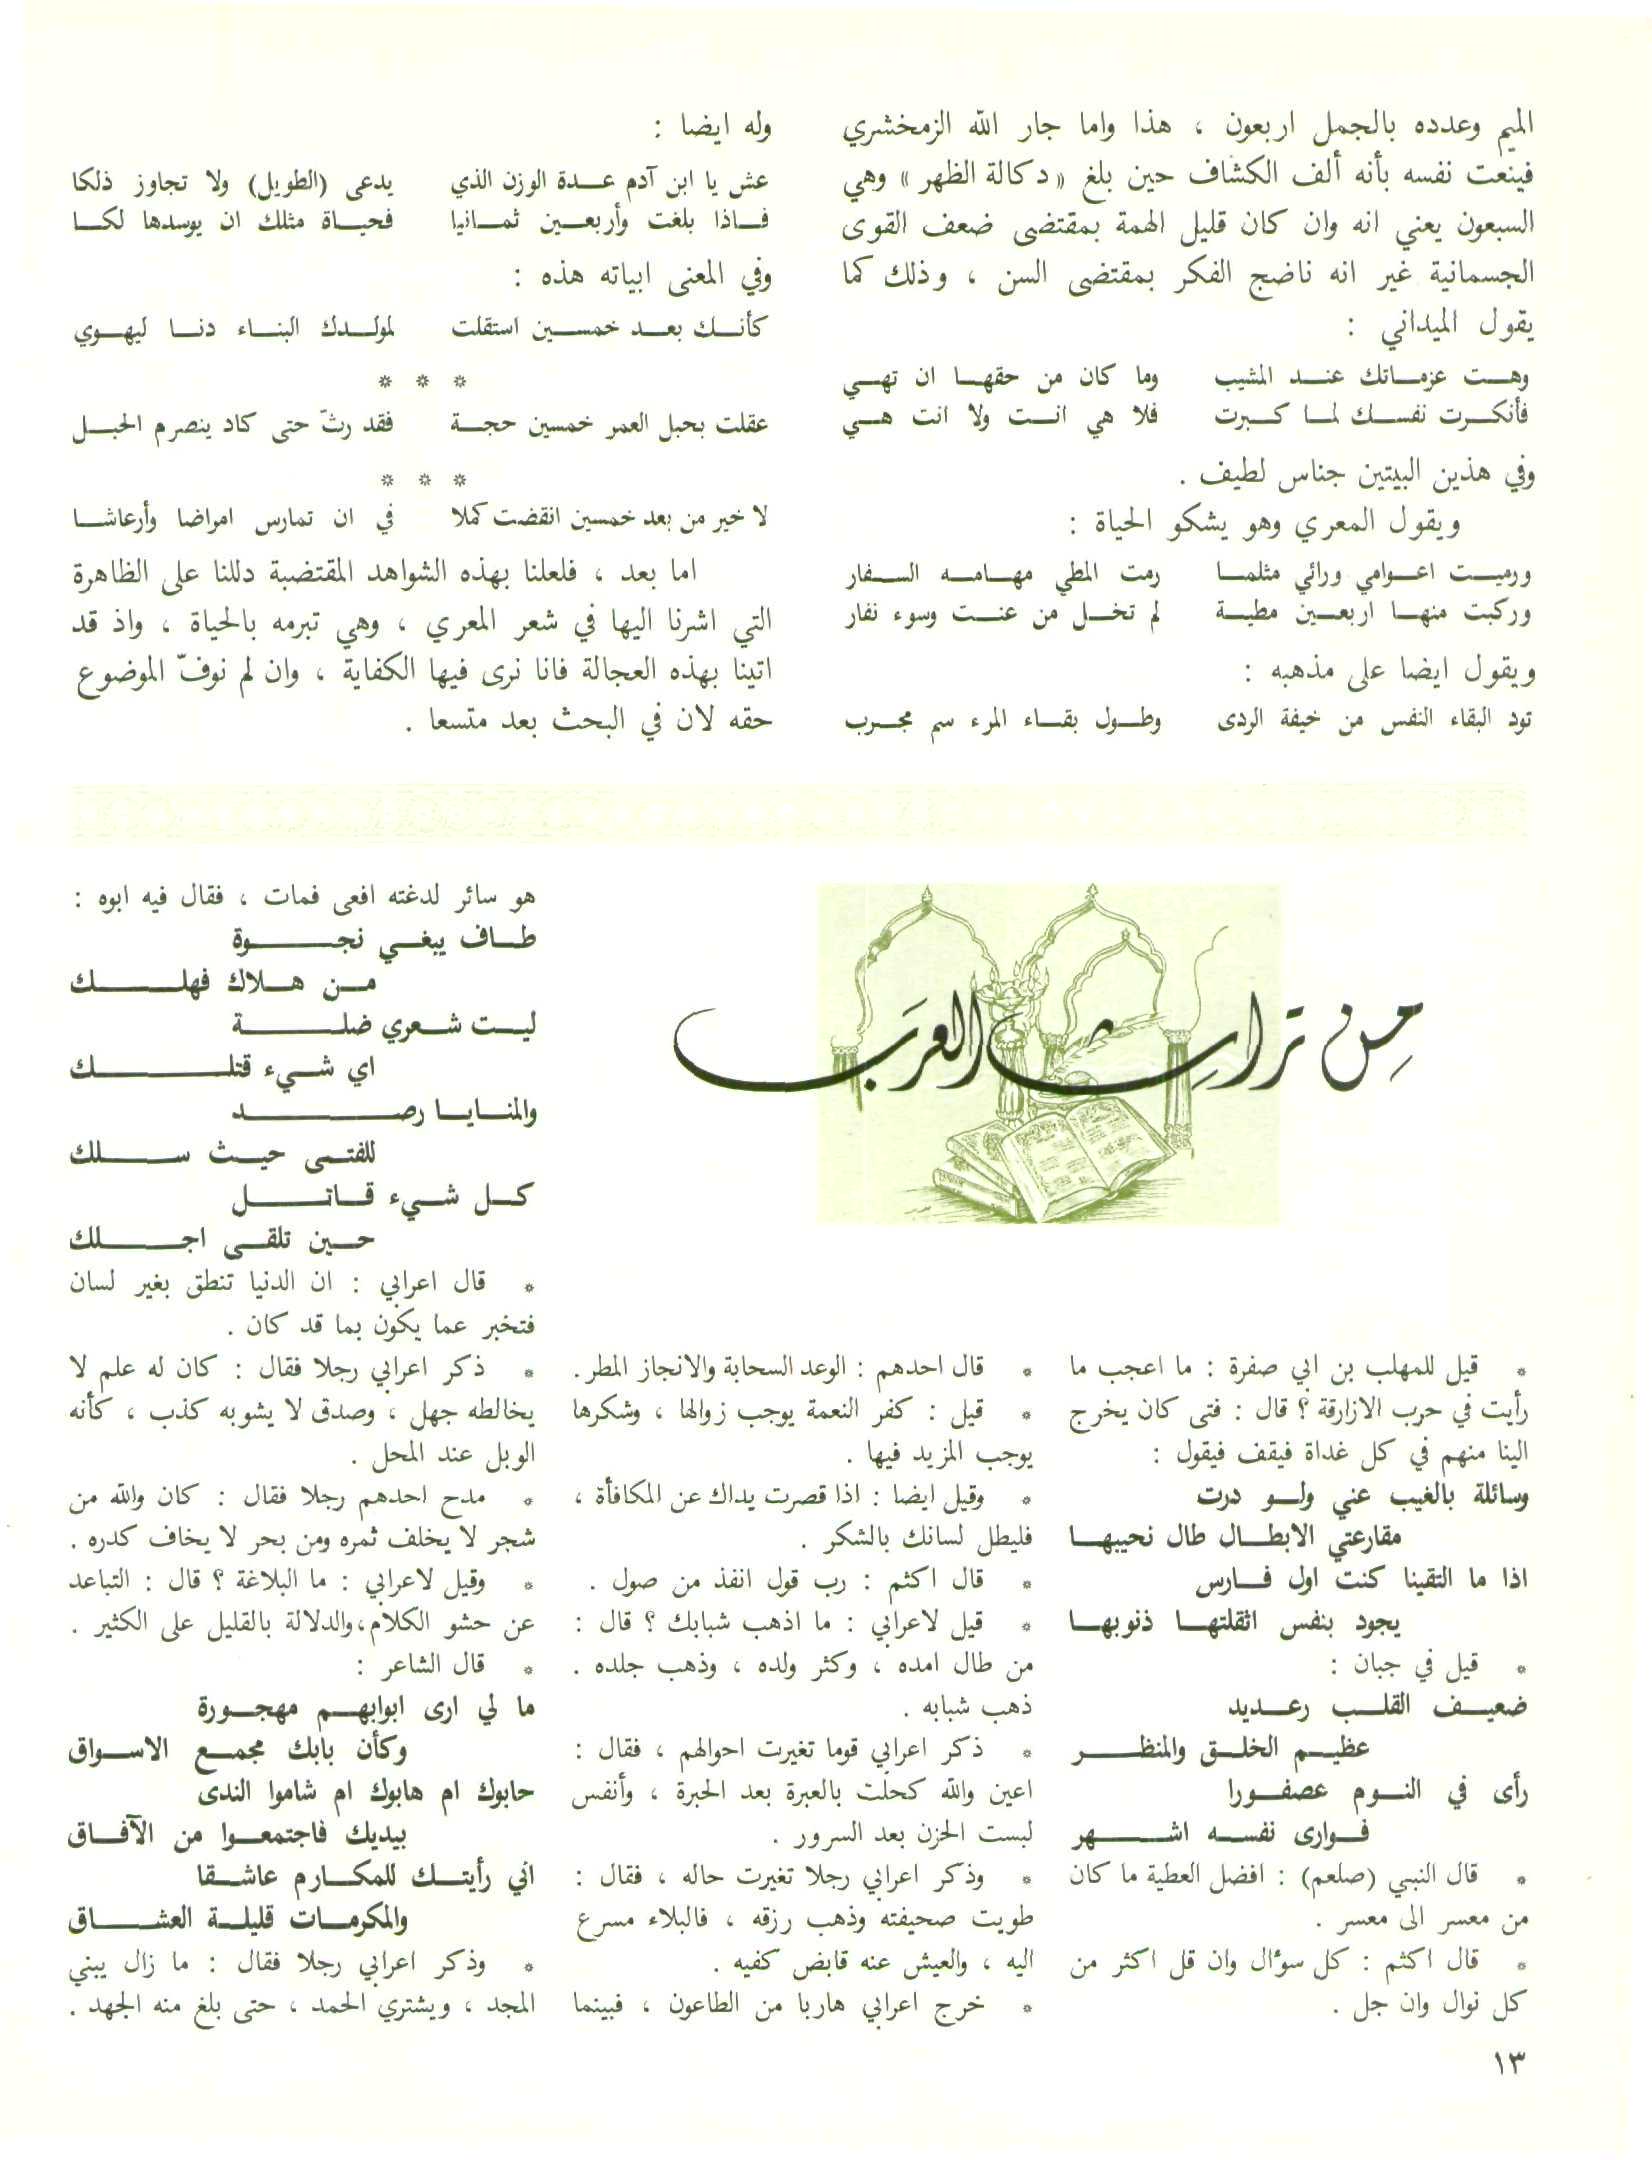 الميم وعدده بالجمل اربعون ، هذا واما جار الله الزمخشري
فينعت نفسه بأنه ألف الكشاف حين بلغ «دكالة الظهر» وهي
السبعون يعني انه وان كان قليل الهمة بمقتضى ضعف القوى
الجسمانية غير انه ناضج الفكر بمقتضى السن ، وذلك كما
يقول الميداني :
وهت عزماتك عند المشيب وما كان من حقها ان تهي
فأنكرت نفسك لما كبرت فلا هي انت ولا انت هي
وفي هذين البيتين جناس لطيف .
ويقول المعري وهو يشكو الحياة :
ورميت اعوامي ورائي مثلما رمت المطي مهامه السفار
وركبت منها اربعين مطية لم تخل من عنت وسوء نفار
ويقول ايضا على مذهبه :
تود البقاء النفس من خيفة الردى وطول بقاء المرء سم مجرب
وله ايضا :
عش يا ابن آدم عدة الوزن الذي يدعى (الطويل) ولا تجاوز ذلكا
فاذا بلغت وأربعين ثمانيا فحياة مثلك ان يوسدها لكا
وفي المعنى ابياته هذه :
كأنك بعد خمسين استقلت لمولدك البناء دنا ليهوي
* * *
عقلت بحبل العمر خمسين حجة فقد رثّ حتى كاد ينصرم الحبل
* * *
لا خير من بعد خمسين انقضت كملا في ان تمارس امراضا وأرعاشا
اما بعد ، فلعلنا بهذه الشواهد المقتضبة دللنا على الظاهرة
التي اشرنا اليها في شعر المعري ، وهي تبرمه بالحياة ، واذ قد
اتينا بهذه العجالة فانا نرى فيها الكفاية ، وان لم نوفّ الموضوع
حقه لان في البحث بعد متسعا .
من تراث العرب
* قيل للمهلب بن ابي صفرة : ما اعجب ما
رأيت في حرب الازارقة ؟ قال : فتى كان يخرج
الينا منهم في كل غداة فيقف فيقول :
وسائلة بالغيب عني ولو درت
مقارعتي الابطال طال نحيبها
اذا ما التقينا كنت اول فارس
يجود بنفس اثقلتها ذنوبها
* قيل في جبان :
ضعيف القلب رعديد
عظيم الخلق والمنظر
رأى في النوم عصفورا
فوارى نفسه اشهر
* قال النبي (صلعم) : افضل العطية ما كان
من معسر الى معسر .
* قال اكثم : كل سؤال وان قل اكثر من
كل نوال وان جل .
* قال احدهم : الوعد السحابة والانجاز المطر.
* قيل : كفر النعمة يوجب زوالها ، وشكرها
يوجب المزيد فيها .
* وقيل ايضا : اذا قصرت يداك عن المكافأة ،
فليطل لسانك بالشكر .
* قال اكثم : رب قول انفذ من صول .
* قيل لاعرابي : ما اذهب شبابك ؟ قال :
من طال امده ، وكثر ولده ، وذهب جلده .
ذهب شبابه .
* ذكر اعرابي قوما تغيرت احوالهم ، فقال :
اعين والله كحلت بالعبرة بعد الحبرة ، وأنفس
لبست الحزن بعد السرور .
* وذكر اعرابي رجلا تغيرت حاله ، فقال :
طويت صحيفته وذهب رزقه ، فالبلاء مسرع
اليه ، والعيش عنه قابض كفيه .
* خرج اعرابي هاربا من الطاعون ، فبينما
هو سائر لدغته افعى فمات ، فقال فيه ابوه :
طاف يبغي نجوة
من هلاك فهلك
ليت شعري ضلة
اي شيء قتلك
والمنايا رصد
للفتى حيث سلك
كل شيء قاتل
حين تلقى اجلك
* قال اعرابي : ان الدنيا تنطق بغير لسان
فتخبر عما يكون بما قد كان .
* ذكر اعرابي رجلا فقال : كان له علم لا
يخالطه جهل ، وصدق لا يشوبه كذب ، كأنه
الوبل عند المحل .
* مدح احدهم رجلا فقال : كان والله من
شجر لا يخلف ثمره ومن بحر لا يخاف كدره .
* وقيل لاعرابي : ما البلاغة ؟ قال : التباعد
عن حشو الكلام،والدلالة بالقليل على الكثير .
* قال الشاعر :
ما لي ارى ابوابهم مهجورة
وكأن بابك مجمع الاسواق
حابوك ام هابوك ام شاموا الندى
بيديك فاجتمعوا من الآفاق
اني رأيتك للمكارم عاشقا
والمكرمات قليلة العشاق
* وذكر اعرابي رجلا فقال : ما زال يبني
المجد ، ويشتري الحمد ، حتى بلغ منه الجهد .
١٣